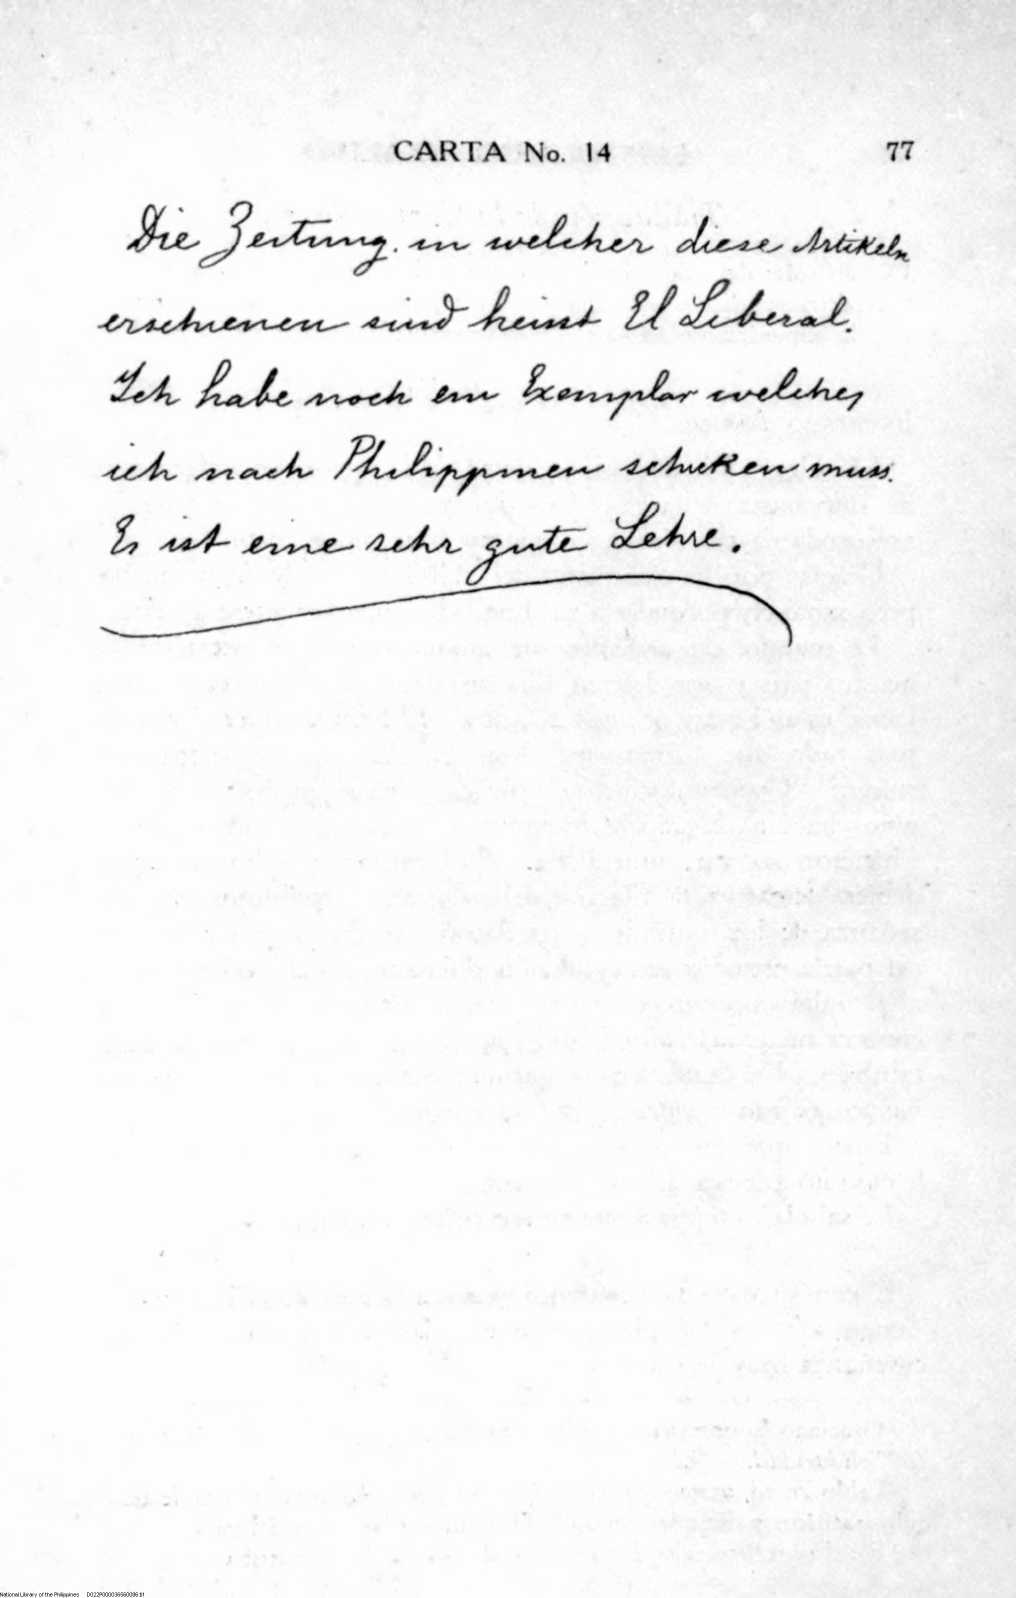 CARTA No. 14 77
Die Zeitung in welcher diese Artikeln
erschienen sind heisst El Liberal.
Ich habe noch ein Exemplar welches
ich nach Philippinen schicken muss.
Es ist eine sehr gute Lehre.
National Library of the Philippines